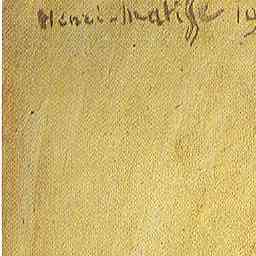 Henri-Matisse 19